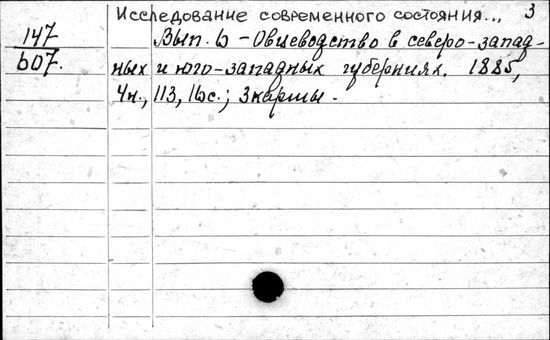 Исследование современного состояния... 3
147
607.
Вып. 6 - Овцеводство в северо-запад-
ных и юго-западных губерниях. 1885,
4н., 113, 16с.; 3 карты.